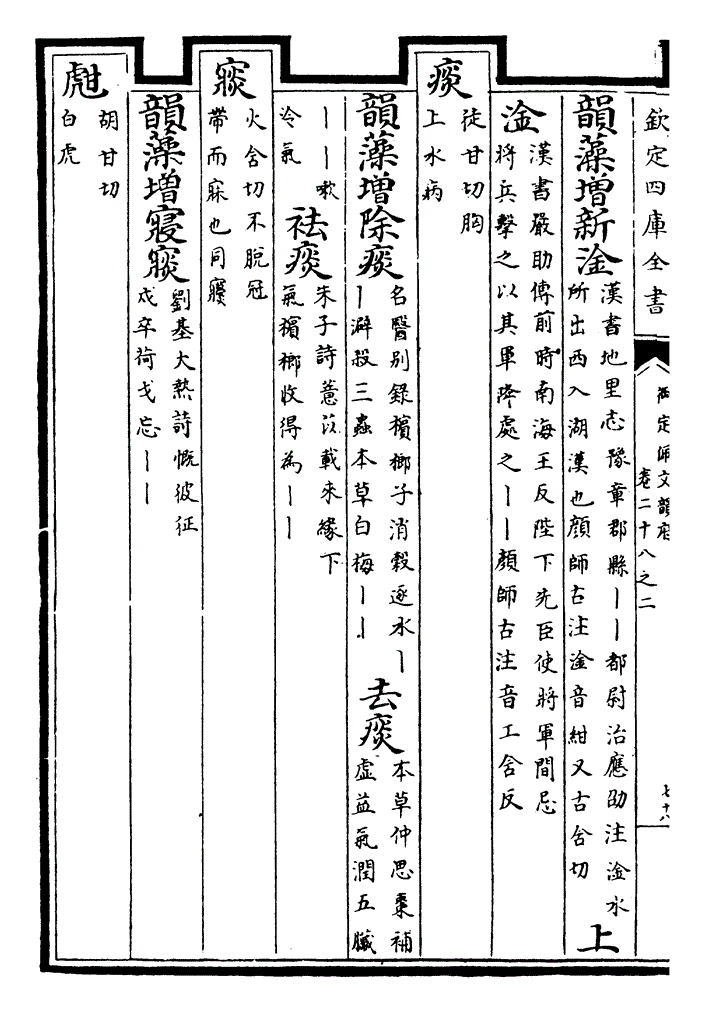 欽定四庫全書
御定佩文韻府
卷二十八之二
七十八
韻藻增新淦
漢書地里志豫章郡縣丨丨都尉治應劭注淦水
所出西入湖漢也顔師古注淦音紺又古含切
上
淦
漢書嚴助傳前時南海王反陛下先臣使將軍間忌
將兵擊之以其軍降處之丨丨顏師古注音工含反
痰
徒甘切胸
上水病
韻藻增除痰
名醫别錄檳榔子消穀逐水丨
丨澼殺三蟲本草白梅丨丨
去痰
本草仲思棗補
虛益氣潤五臟
丨丨嗽
冷氣
祛痰
朱子詩薏苡載來緣下
氣檳榔收得為丨丨
㝮
火含切不脫冠
帶而寐也同𥧾
韻藻增寢㝮
劉基大熱詩慨彼征
戍卒荷戈忘丨丨
甝
胡甘切
白虎